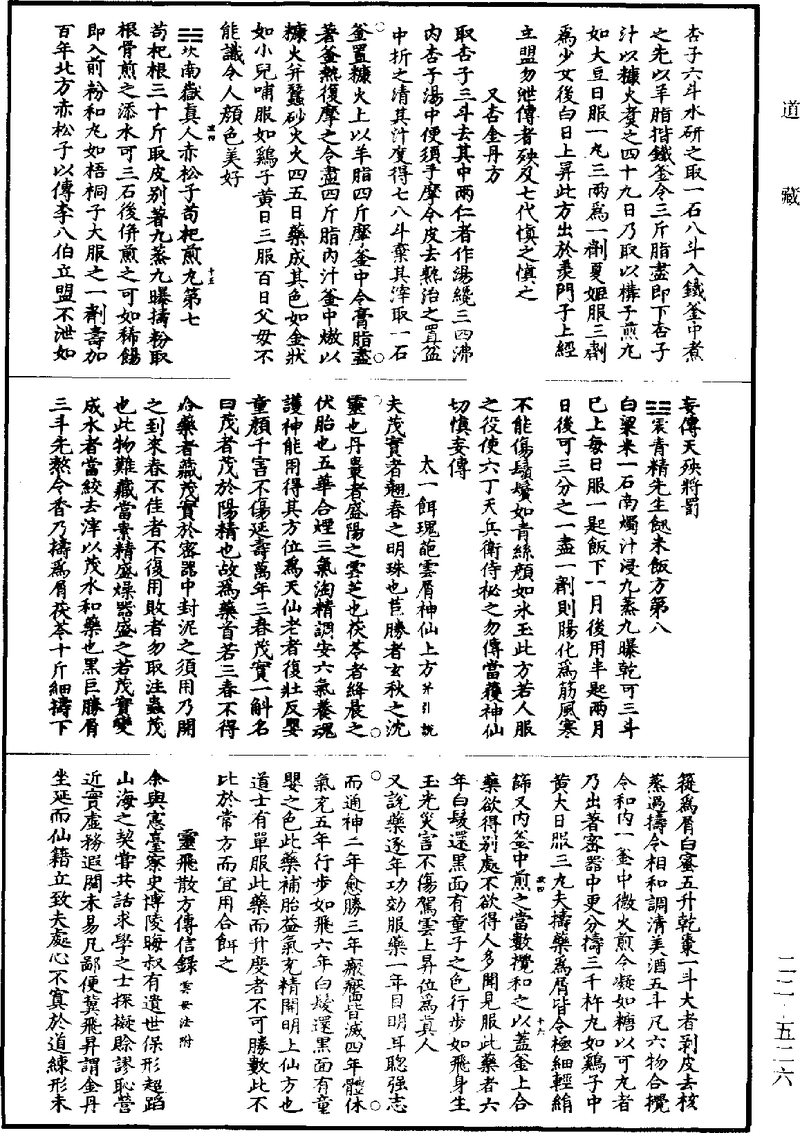 道藏
杏子六斗水研之取一石八斗入鐵釜中煮
之先以羊脂揩鐵釜令三斤脂盡即下杏子
汁以糠火煑之四十九日乃取以構子煎丸
如大豆日服一丸三兩爲一劑夏姬服三劑
爲少女後白日上昇此方出於羨門子上經
主盟勿泄傳者殃及七代慎之慎之
又杏金丹方
取杏子三斗去其中兩仁者作湯纔三四沸
內杏子湯中便須手摩令皮去熟治之置盆
中折之清其汁度得七八斗棄其滓取一石
釜置糠火上以羊脂四斤摩釜中令膏脂盡
著釜熱復摩之令盡四斤脂內汁釜中熬以
糠火并蠶砂火火四五日藥成其色如金狀
如小兒哺服如鷄子黃日三服百日父母不
能識令人顏色美好
☵坎南嶽真人赤松子苟杞煎丸第七
苟杞根三十斤取皮别著九蒸九曝擣粉取
根骨煎之添水可三石後併煎之可如稀餳
即入前粉和丸如梧桐子大服之一劑壽加
百年北方赤松子以傳李八伯立盟不泄如
妄傳天殃將罰
☳震青精先生䭀米飯方第八
白粱米一石南燭汁浸九蒸九曝乾可三斗
已上每日服一匙飯下一月後用半匙兩月
日後可三分之一盡一劑則腸化爲筋風寒
不能傷鬚鬢如青絲顏如氷玉此方若人服
之役使六丁天兵衛侍秘之勿傳當獲神仙
切慎妄傳
太一餌瑰葩雲屑神仙上方并引說
夫茂實者翹春之明珠也巨勝者玄秋之沈
靈也丹棗者盛陽之雲芝也茯苓者絳晨之
伏胎也五華合煙三氣淘精調安六氣養魂
護神能用得其方位爲天仙老者復壯反嬰
童顏千害不傷延壽萬年三春茂實一斛名
曰茂者茂於陽精也故爲藥首若三春不得
合藥者藏茂實於密器中封泥之須用乃開
之到來春不佳者不復用敗者勿取注蟲茂
也此物難藏當素精盛燥器盛之若茂實變
成水者當絞去滓以茂水和藥也黑巨勝屑
三斗先熬令香乃擣爲屑茯苓十斤細擣下
簁爲屑白蜜五升乾棗一斗大者剥皮去核
蒸過擣令相和調清美酒五斗凡六物合攪
令和內一釜中微火煎令凝如糖以可丸者
乃出著密器中更分擣三千杵丸如鷄子中
黃大日服三丸夫擣藥爲屑皆令極細輕絹
篩又內釜中煎之當數攪和之以蓋釜上合
藥欲得别處不欲得人多聞見服此藥者六
年白髮還黑面有童子之色行步如飛身生
玉光災害不傷駕雲上昇位爲真人
又說藥逐年功効服藥一年目明耳聰强志
而通神二年愈勝三年癥瘢皆滅四年體休
氣充五年行步如飛六年白髮還黑面有童
嬰之色此藥補胎益氣充精開明上仙方也
道士有單服此藥而升度者不可勝數此不
比於常方而宜用合餌之
靈飛散方傳信錄雲母法附
余與憲臺察史博陵晦叔有遺世保形超蹈
山海之契嘗共話求學之士探擬賒謬恥營
近實虛務遐闊未易凡鄙便冀飛昇謂金丹
坐延而仙籍立致夫處心不寘於道練形未
二二·五二六